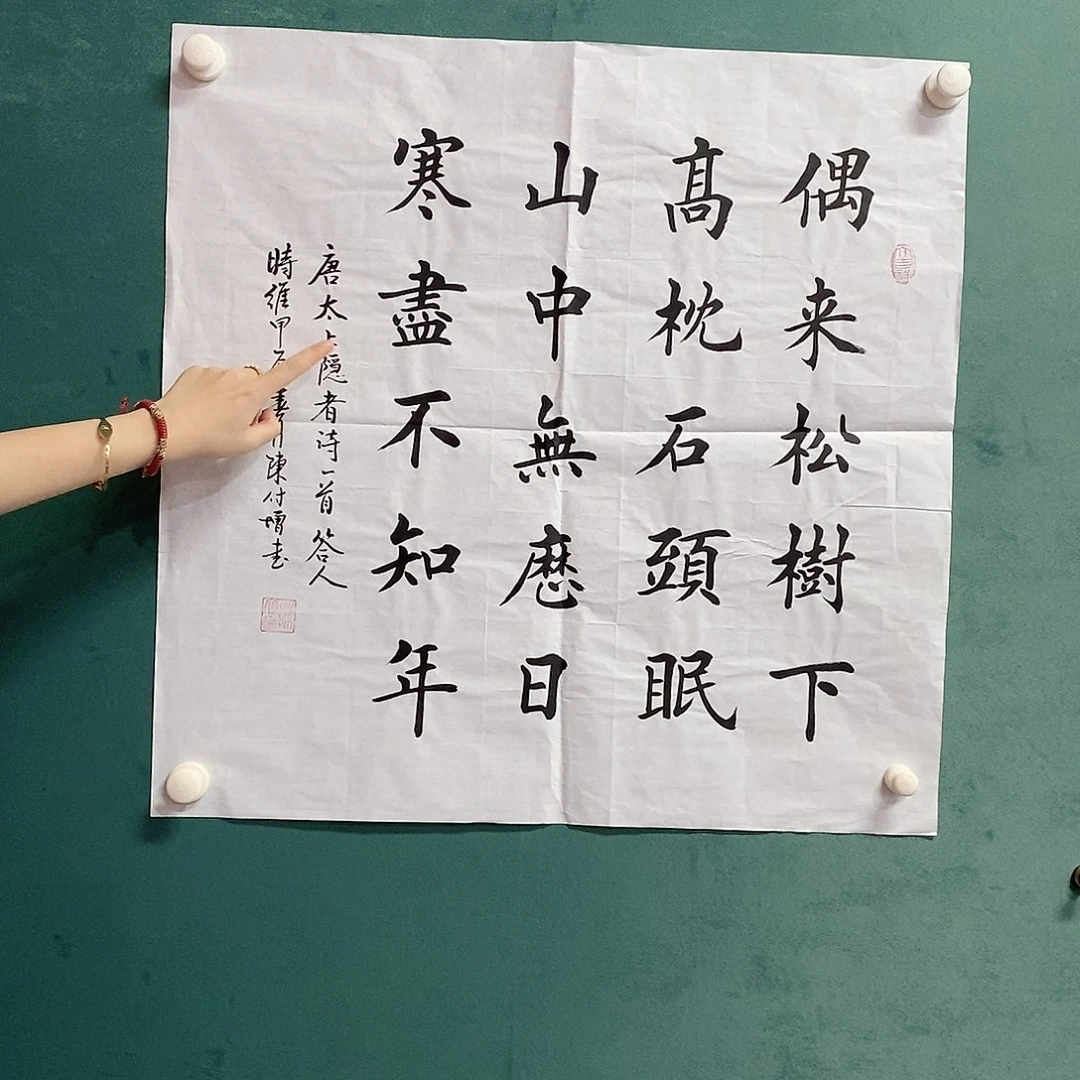 偶来松樹下
髙枕石頭眠
山中無厯日
寒盡不知年
唐太上隠者诗一首 答人
時維甲 陳付增书